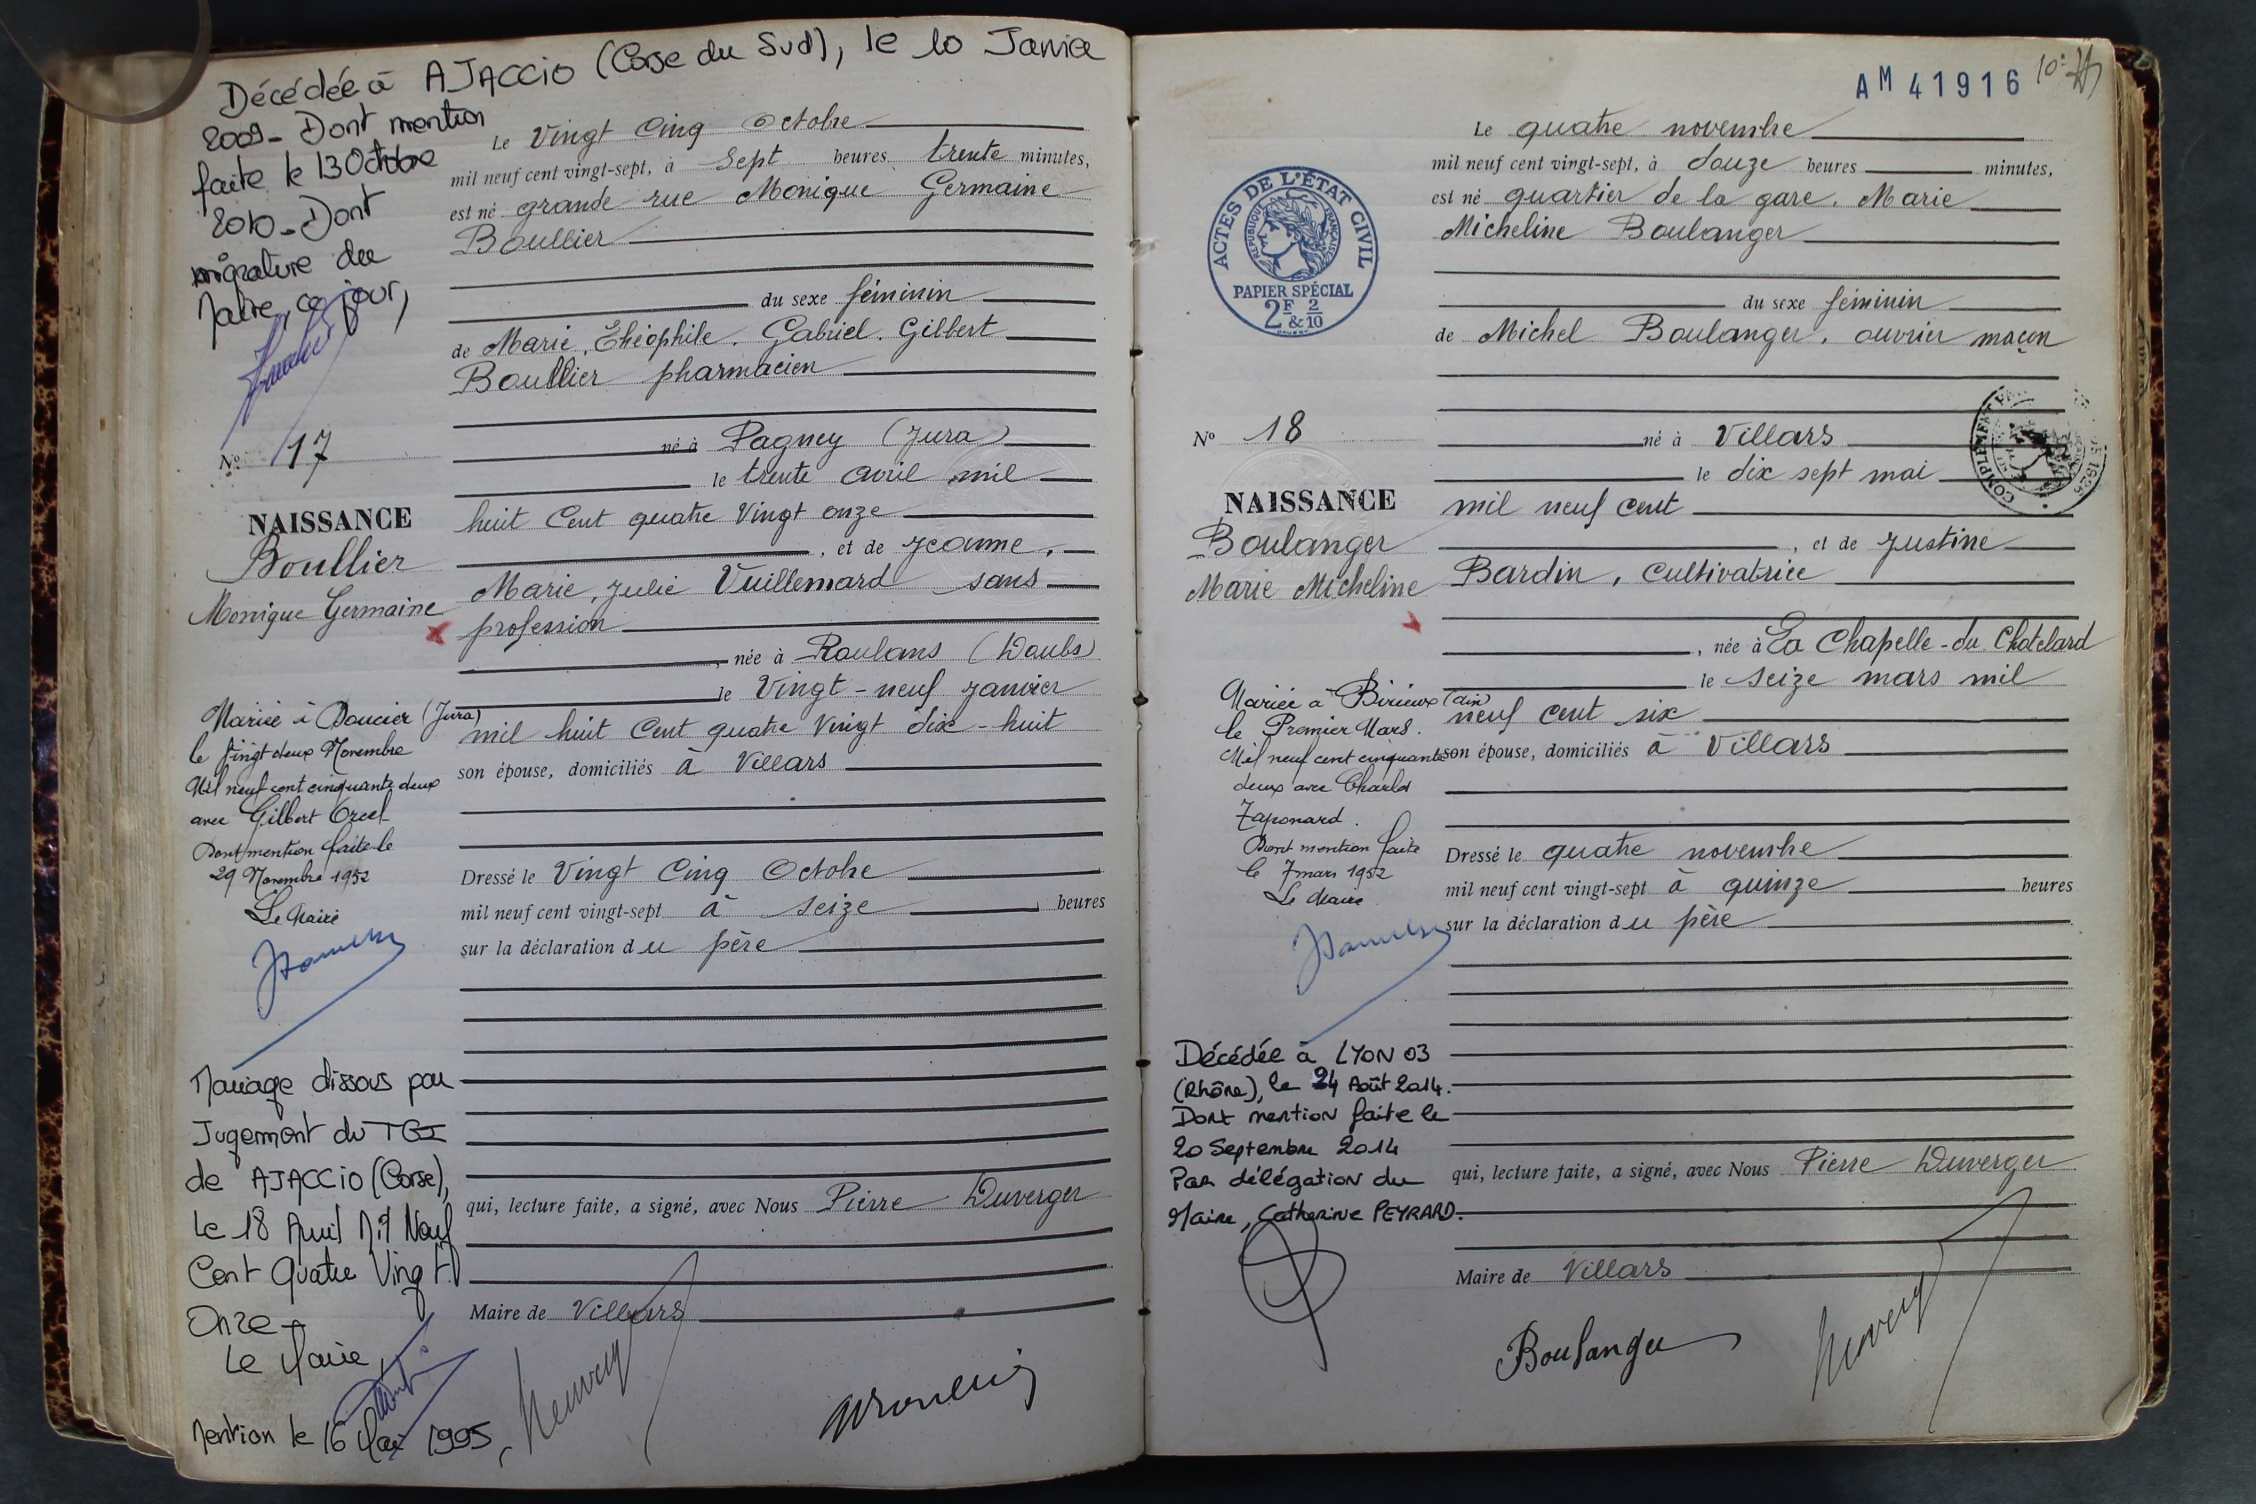 Décédée à AJACCIO (Corse du Sud), le 10 Janvier
2009 - Dont mention
faite le 13 Octobre
2010 - Dont
signature du
Maire, ce jour,
N° 17
NAISSANCE
Boullier
Monique Germaine
Mariée à Doucier (Jura)
le vingt deux Novembre
Mil neuf cent cinquante deux
avec Gilbert
Dont mention faite le
29 Novembre 1952
Le Maire
Mariage dissous par
Jugement du TGI
de AJACCIO (Corse),
Le 18 Avril Mil Neuf
Cent Quatre Vingt
Onze -
Le Maire,
Mention le 16 Mai 1995,
Le Vingt Cinq Octobre
mil neuf cent vingt-sept, à Sept heures trente minutes,
est né grande rue Monique Germaine
Boullier
du sexe féminin
de Marie, Théophile, Gabriel, Gilbert
Boullier pharmacien
né à Pagney (Jura)
le trente avril mil
huit Cent quatre Vingt onze
, et de Jeanne,
Marie, Julie Vuillemard sans
profession
, née à Roulans (Doubs)
le Vingt-neuf janvier
mil huit Cent quatre Vingt dix-huit
son épouse, domiciliés à Villars
Dressé le Vingt Cinq Octobre
mil neuf cent vingt-sept à seize heures
sur la déclaration du père
qui, lecture faite, a signé, avec Nous Pierre Duverger
Maire de Villars
AM 41916
ACTES DE L'ÉTAT CIVIL
RÉPUBLIQUE FRANÇAISE
PAPIER SPÉCIAL
2F & 2/10
N° 18
NAISSANCE
Boulanger
Marie Micheline
Mariée à Birieux (Ain)
le Premier Mars
Mil neuf cent cinquante
deux avec Charles
Zaponard.
Dont mention faite
le 7 mars 1952
Le Maire
Décédée à LYON 03
(Rhône), le 24 Août 2014.
Dont mention faite le
20 Septembre 2014
Par délégation du
Maire, Catherine PEYRARD.
Le quatre novembre
mil neuf cent vingt-sept, à douze heures minutes,
est né quartier de la gare, Marie
Micheline Boulanger
du sexe féminin
de Michel Boulanger, ouvrier maçon
COMPLÉMENT
1926
né à Villars
le dix sept mai
mil neuf cent
, et de Justine
Bardin, cultivatrice
, née à La Chapelle-du Chatelard
le seize mars mil
neuf cent six
son épouse, domiciliés à Villars
Dressé le quatre novembre
mil neuf cent vingt-sept à quinze heures
sur la déclaration du père
qui, lecture faite, a signé, avec Nous Pierre Duverger
Maire de Villars
Boulanger